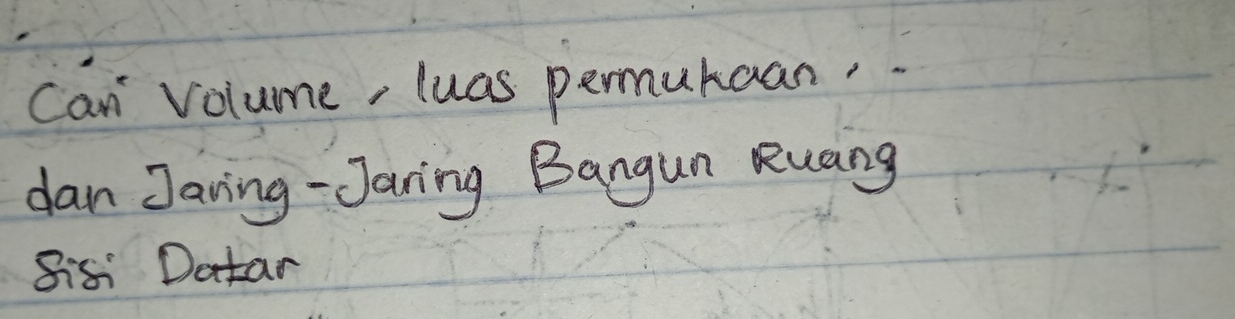 Cari Volume, luas permukaan,
dan Jaring-Jaring Bangun Ruang
Sisi Datar